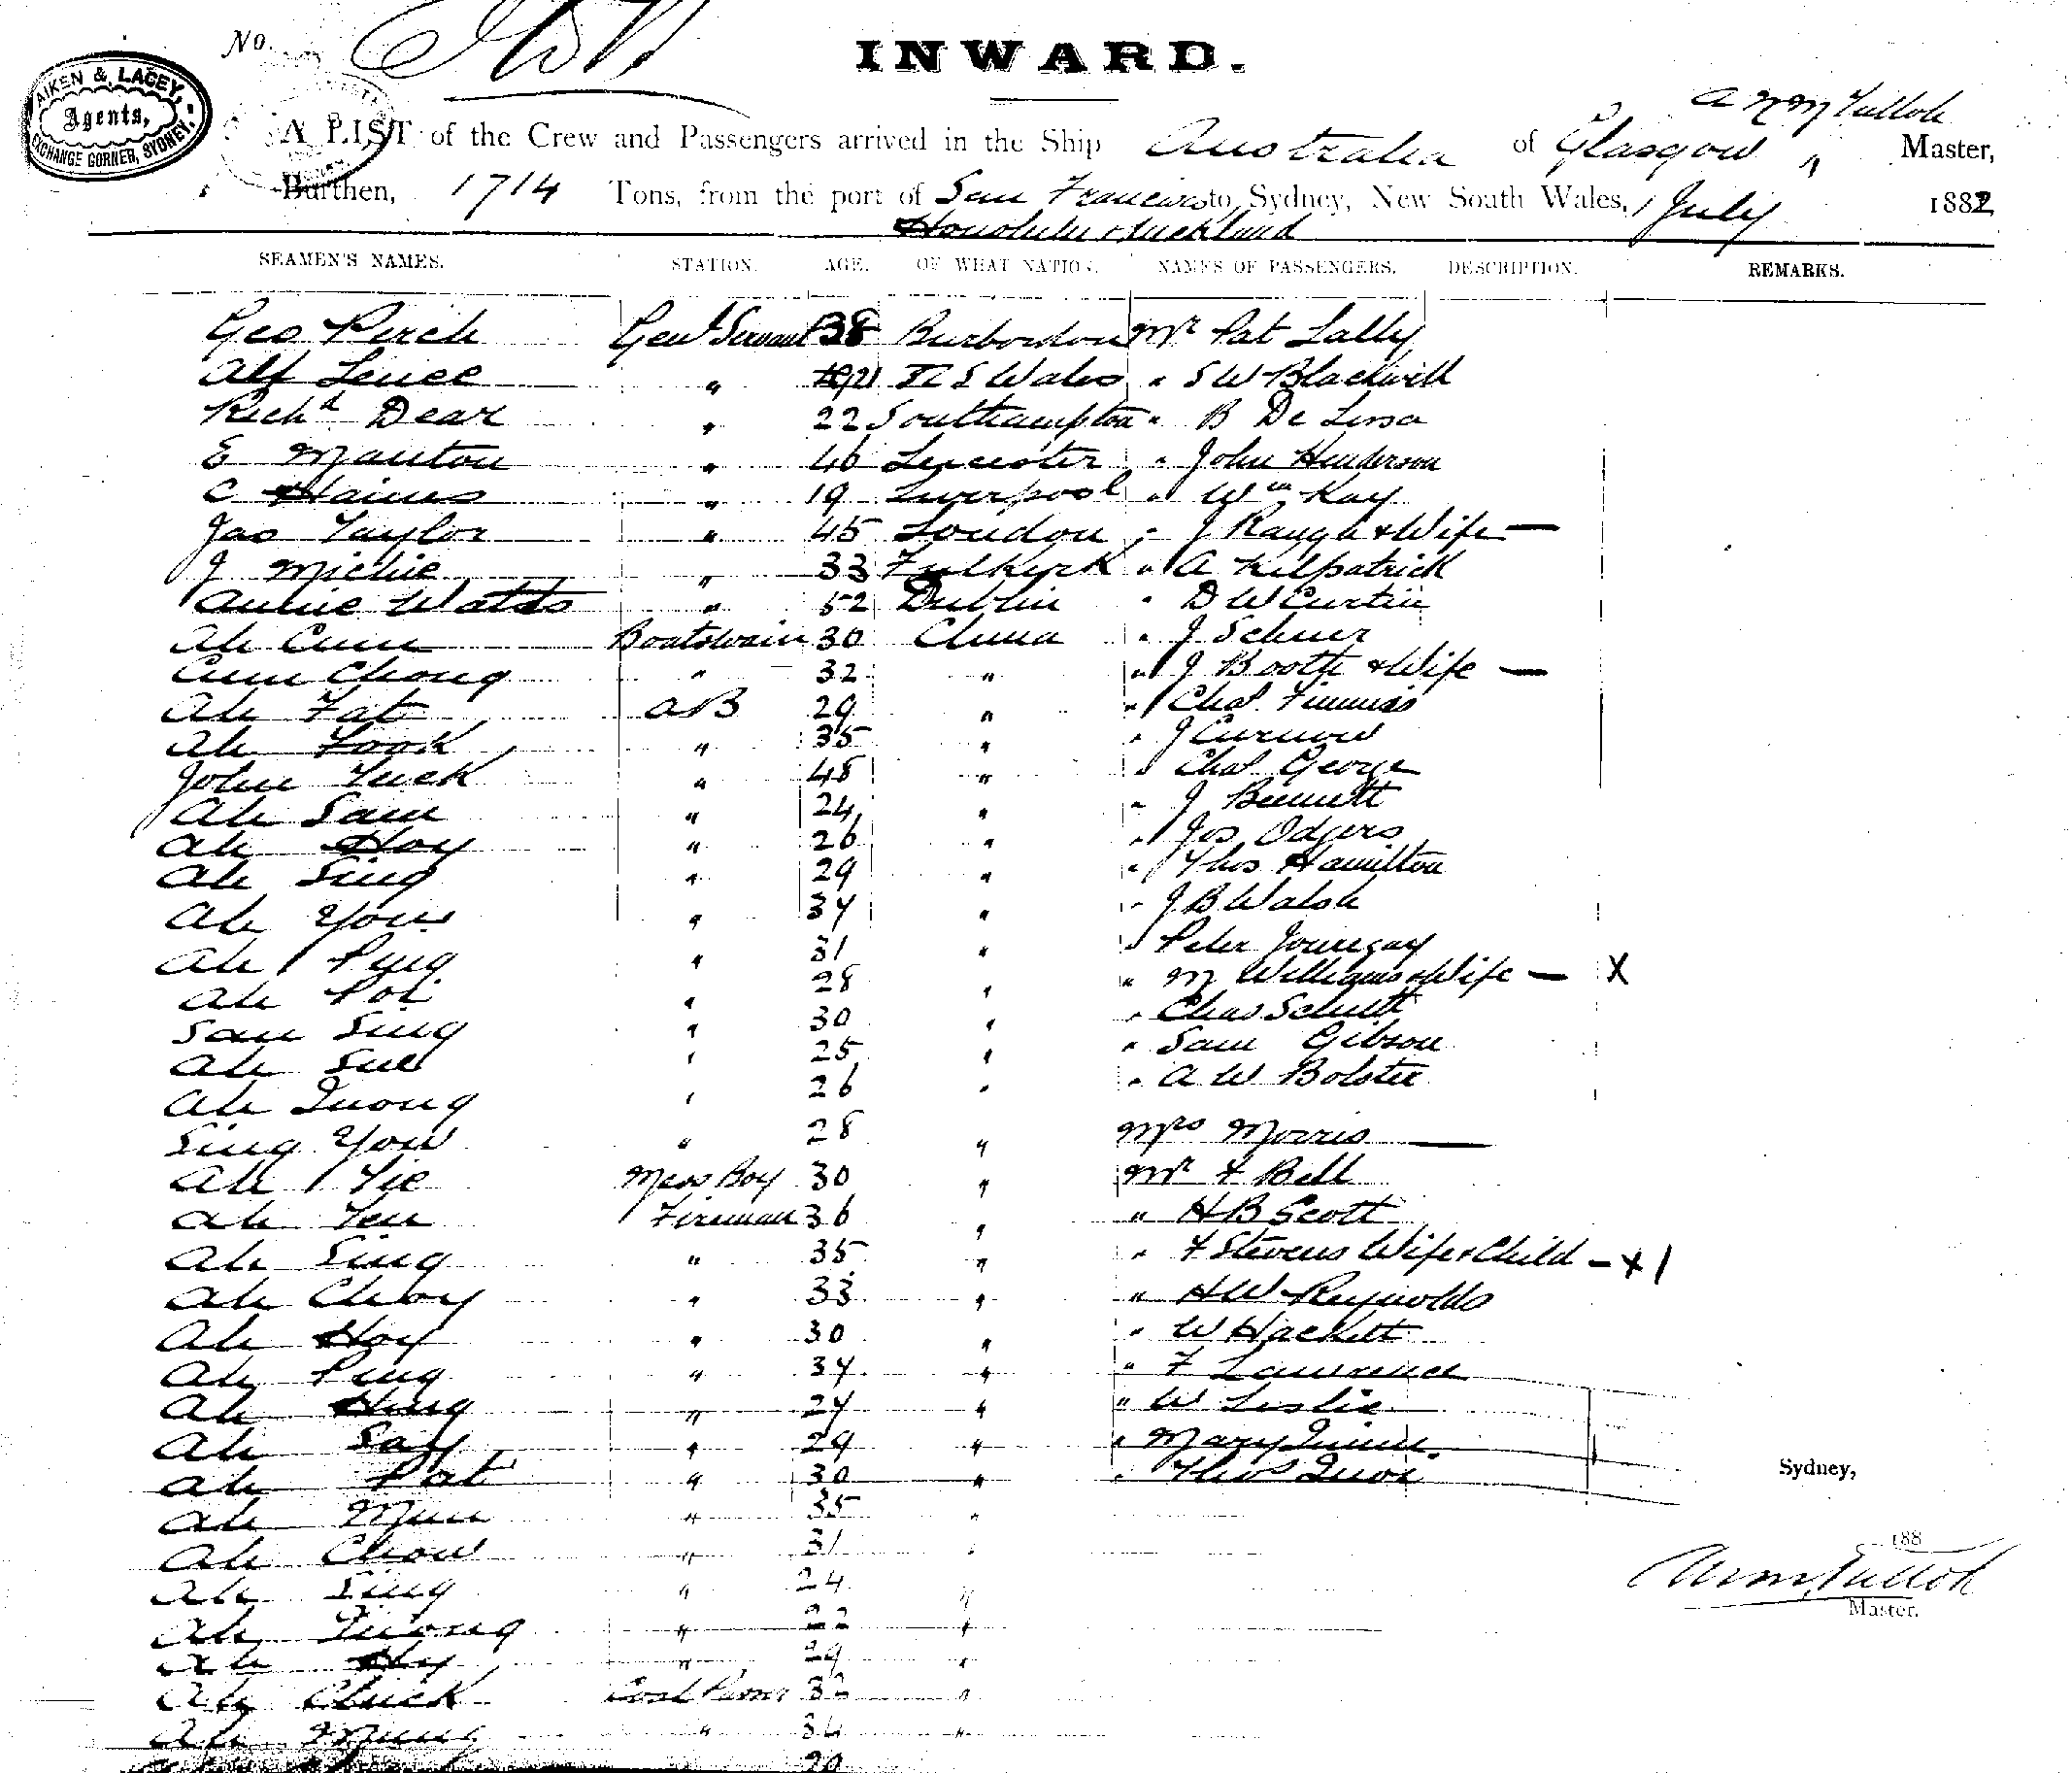 No.
INWARD.
AIKEN & LACEY,
Agents,
EXCHANGE CORNER, SYDNEY.
A LIST of the Crew and Passengers arrived in the Ship Australia of Glasgow Master,
Burthen, 1714 Tons, from the port of San Francisco to Sydney, New South Wales, 1 July 1882
Honolulu & Auckland
SEAMEN'S NAMES. STATION. AGE. OF WHAT NATION. NAMES OF PASSENGERS. DESCRIPTION. REMARKS.
Geo Perch Genl Servant 38 Mr Pat Lally
Alf " N S Wales " S W Blackwell
Richd Dear " 22 Southampton " B De Lissa
E Manton " 46 Leicester " John Henderson
C Haines " 19 Liverpool " Wm Kay
Jas Taylor " 45 London " J Raugh & Wife —
J Michie " 33 Falkirk " A Kilpatrick
Annie Watts " 52 Dublin " D W Curtin
Ah Cum Boatswain 30 China " J
Cum Chong " 32 " " J Booth & Wife —
Ah Fat AB 29 " " Chas Timmis
Ah Fook " 35 " " J Curnow
John Tuck " 48 " " Chas George
Ah Sam " 24 " " J Bennett
Ah Hoy " 26 " " Jos Odgers
Ah Sing " 29 " " Thos Hamilton
Ah You " 34 " " J B Walsh
Ah Ping " 31 " " Peter
Ah Poi " 28 " " M Williams & Wife — X
Sam Sing " 30 " " Chas Schutt
Ah Sue " 25 " " Sam Gibson
Ah Quong " 26 " " A W Bolster
Sing You " 28 " Mrs Morris —
Ah Yie Mess Boy 30 " Mr F Bell
Ah Yen Fireman 36 " " H B Scott
Ah Sing " 35 " " F Stevens Wife & Child — X 1
Ah Choy " 33 " " H W Reynolds
Ah Hoy " 30 " " W Hackett
Ah Ping " 34 " " F Lawrence
Ah Hing " 24 " " W Leslie
Ah Say " 29 " " Mary Quinn
Ah Pat " 30 " " Thos
Ah Mun " 35 "
Ah Chow " 31 "
Ah Sing " 24 "
Ah Quong " 22 "
Ah Hy " 29 "
Ah Chuck Coal Passr 32 "
Ah Mung " 34 "
20
Sydney,
188
Master.